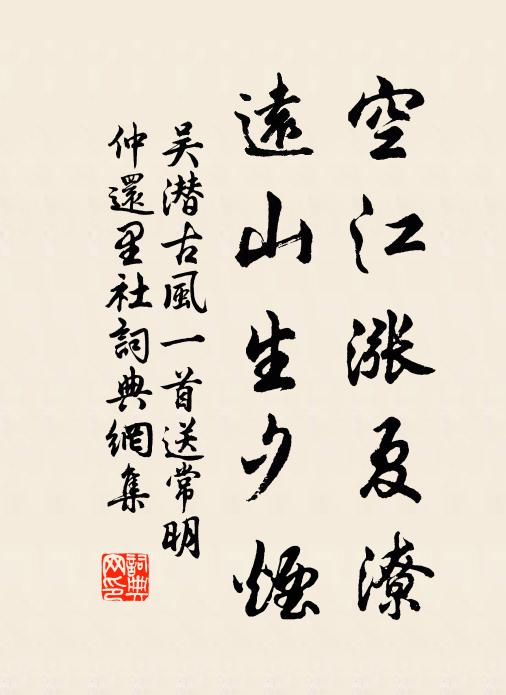 空江漲夏潦
遠山生夕煙
吴潛古風一首送常明
仲還里社詞典網集
詞典网印